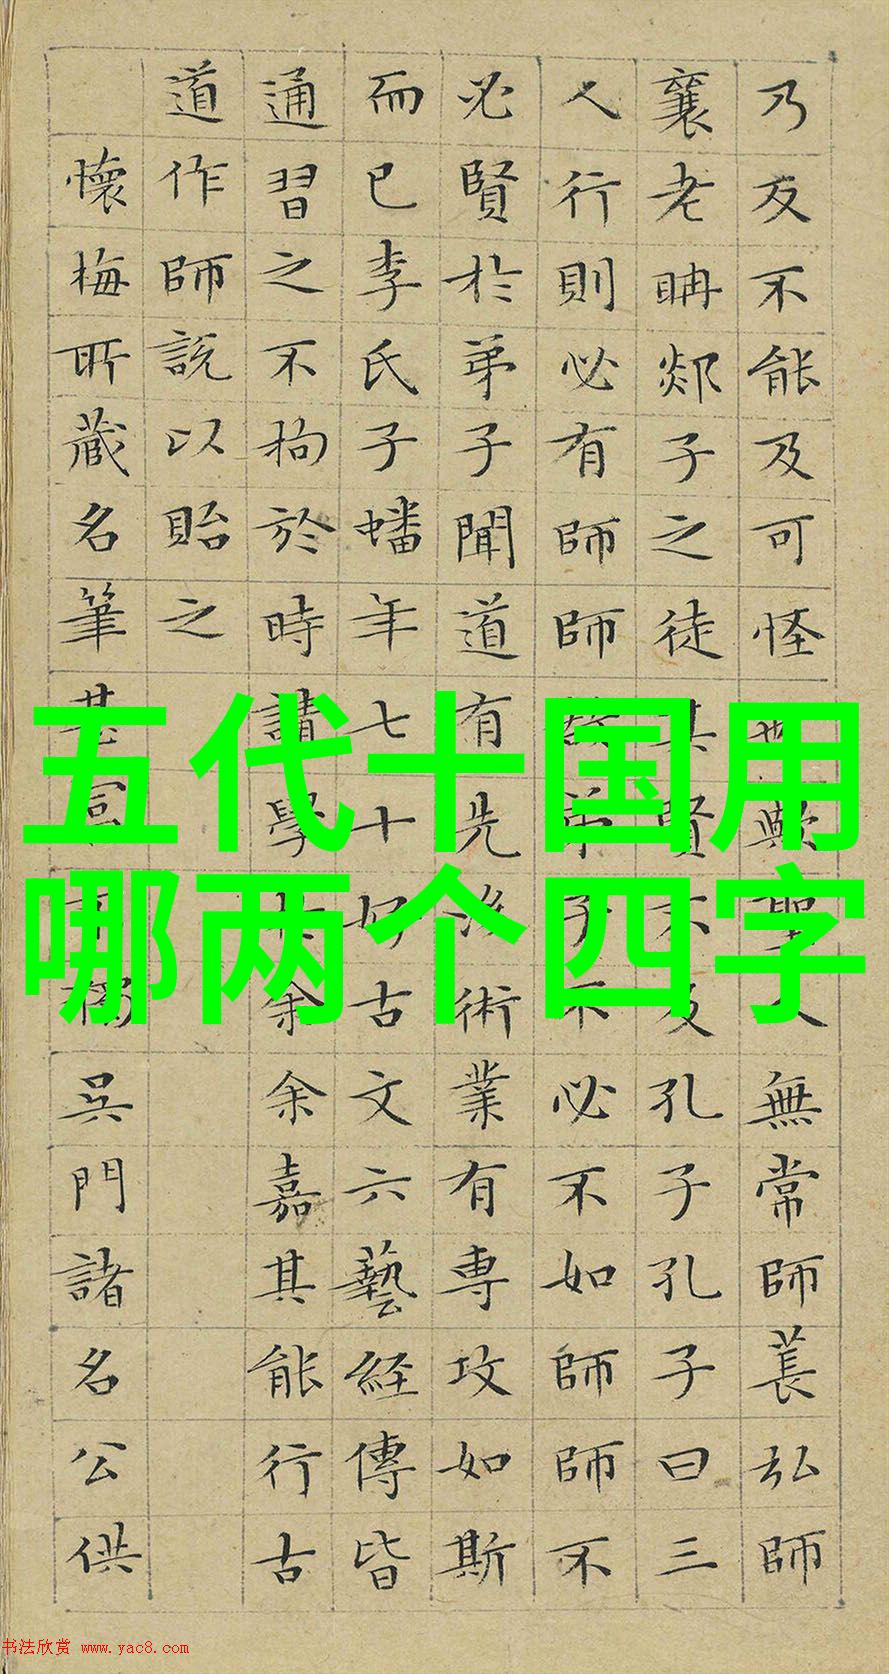 乃反不能及可怪也歟聖人無常師萇弘師
襄老聃郯子之徒其賢不及孔子孔子曰三
人行則必有師師故弟子不必不如師師不
必賢於弟子聞道有先後術業有專攻如斯
而已李氏子蟠年七十好古文六藝經傳皆
通習之不拘於時請學於余余嘉其能行古
道作師説以貽之
懷梅所藏名筆甚富不獨吳門諸名公供
五代十国用
哪两个四字
书法欣赏 www.yac8.com